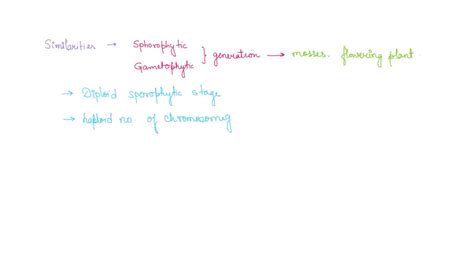 Similarities → Sphorophytic
Gametophytic } generation → mosses. flowering plant
→ Diploid sporophytic stage
→ haploid no. of chromosomes